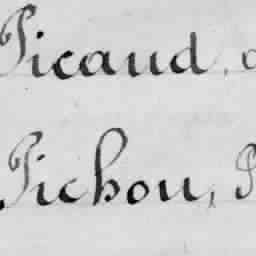 Picaud,
Pichon,